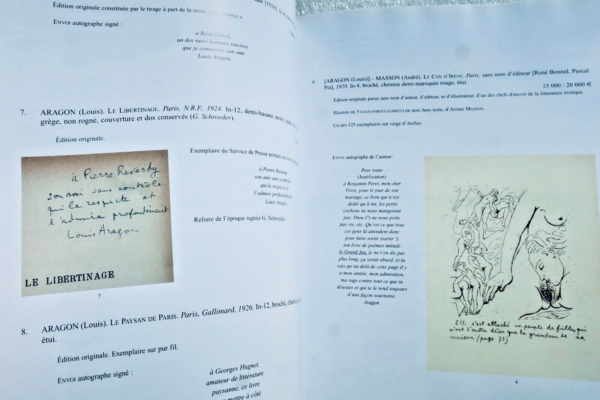 Édition originale constituée par le tirage à part de la revue
ENVOI autographe signé :
à René
un des rares hommes sincères
que je connaisse, son ami
Louis Aragon.
7. ARAGON (Louis). LE LIBERTINAGE. Paris, N.R.F., 1924. In-12, demi-basane
grège, non rogné, couverture et dos conservés (G. Schroeder).
Édition originale.
Exemplaire du Service de Presse portant
à Pierre Reverdy
son ami sans contrôle
qui le respecte et
l'admire profondément
Louis Aragon.
Reliure de l'époque signée G. Schroeder.
à Pierre Reverdy
son ami sans contrôle
qui le respecte et
l'admire profondément
Louis Aragon
LE LIBERTINAGE
7
8. ARAGON (Louis). LE PAYSAN DE PARIS. Paris, Gallimard, 1926. In-12, broché,
étui.
Édition originale. Exemplaire sur pur fil.
ENVOI autographe signé :
à Georges Hugnet,
amateur de littérature
paysanne, ce livre
à mettre à côté
[ARAGON (Louis)] – MASSON (André). LE CON D'IRÈNE. Paris, sans nom d'éditeur [René Bonnel, Pascal
Pia], 1928. In-4, broché, chemise demi-maroquin rouge, étui.
15 000 / 20 000 €
Édition originale parue sans nom d'auteur, d'éditeur, et d'illustrateur, d'un des chefs d'œuvre de la littérature érotique.
Illustrée de 5 EAUX-FORTES en noir, hors texte, d'ANDRÉ MASSON.
Un des 125 exemplaires sur vergé d'Arches.
ENVOI autographe de l'auteur :
Pour toute
(Justification)
à Benjamin Péret, mon cher
Péret, pour le jour de ton
mariage, ce livre qui n'est
dédié qu'à toi, les petits
cochons ne nous mangeront
pas, Dieu (?) ne nous prête
pas vie, etc. Qu'est-ce que tous
ces gens là attendent donc
pour faire sortir (sortir !)
ton livre de poèmes intitulé
le Grand Jeu, je ne t'en dis pas
plus long, ça serait absurd, et tu
sais qu'au delà de cette page il y
a mon amitié, mon admiration,
ma rage contre tout ce que tu
détestes et qui te le rend toujours
d'une façon sournoise
Aragon
Elle s'est attaché un peuple de
n'ont d'autre désir que la grandeur de sa
maison (page 73)